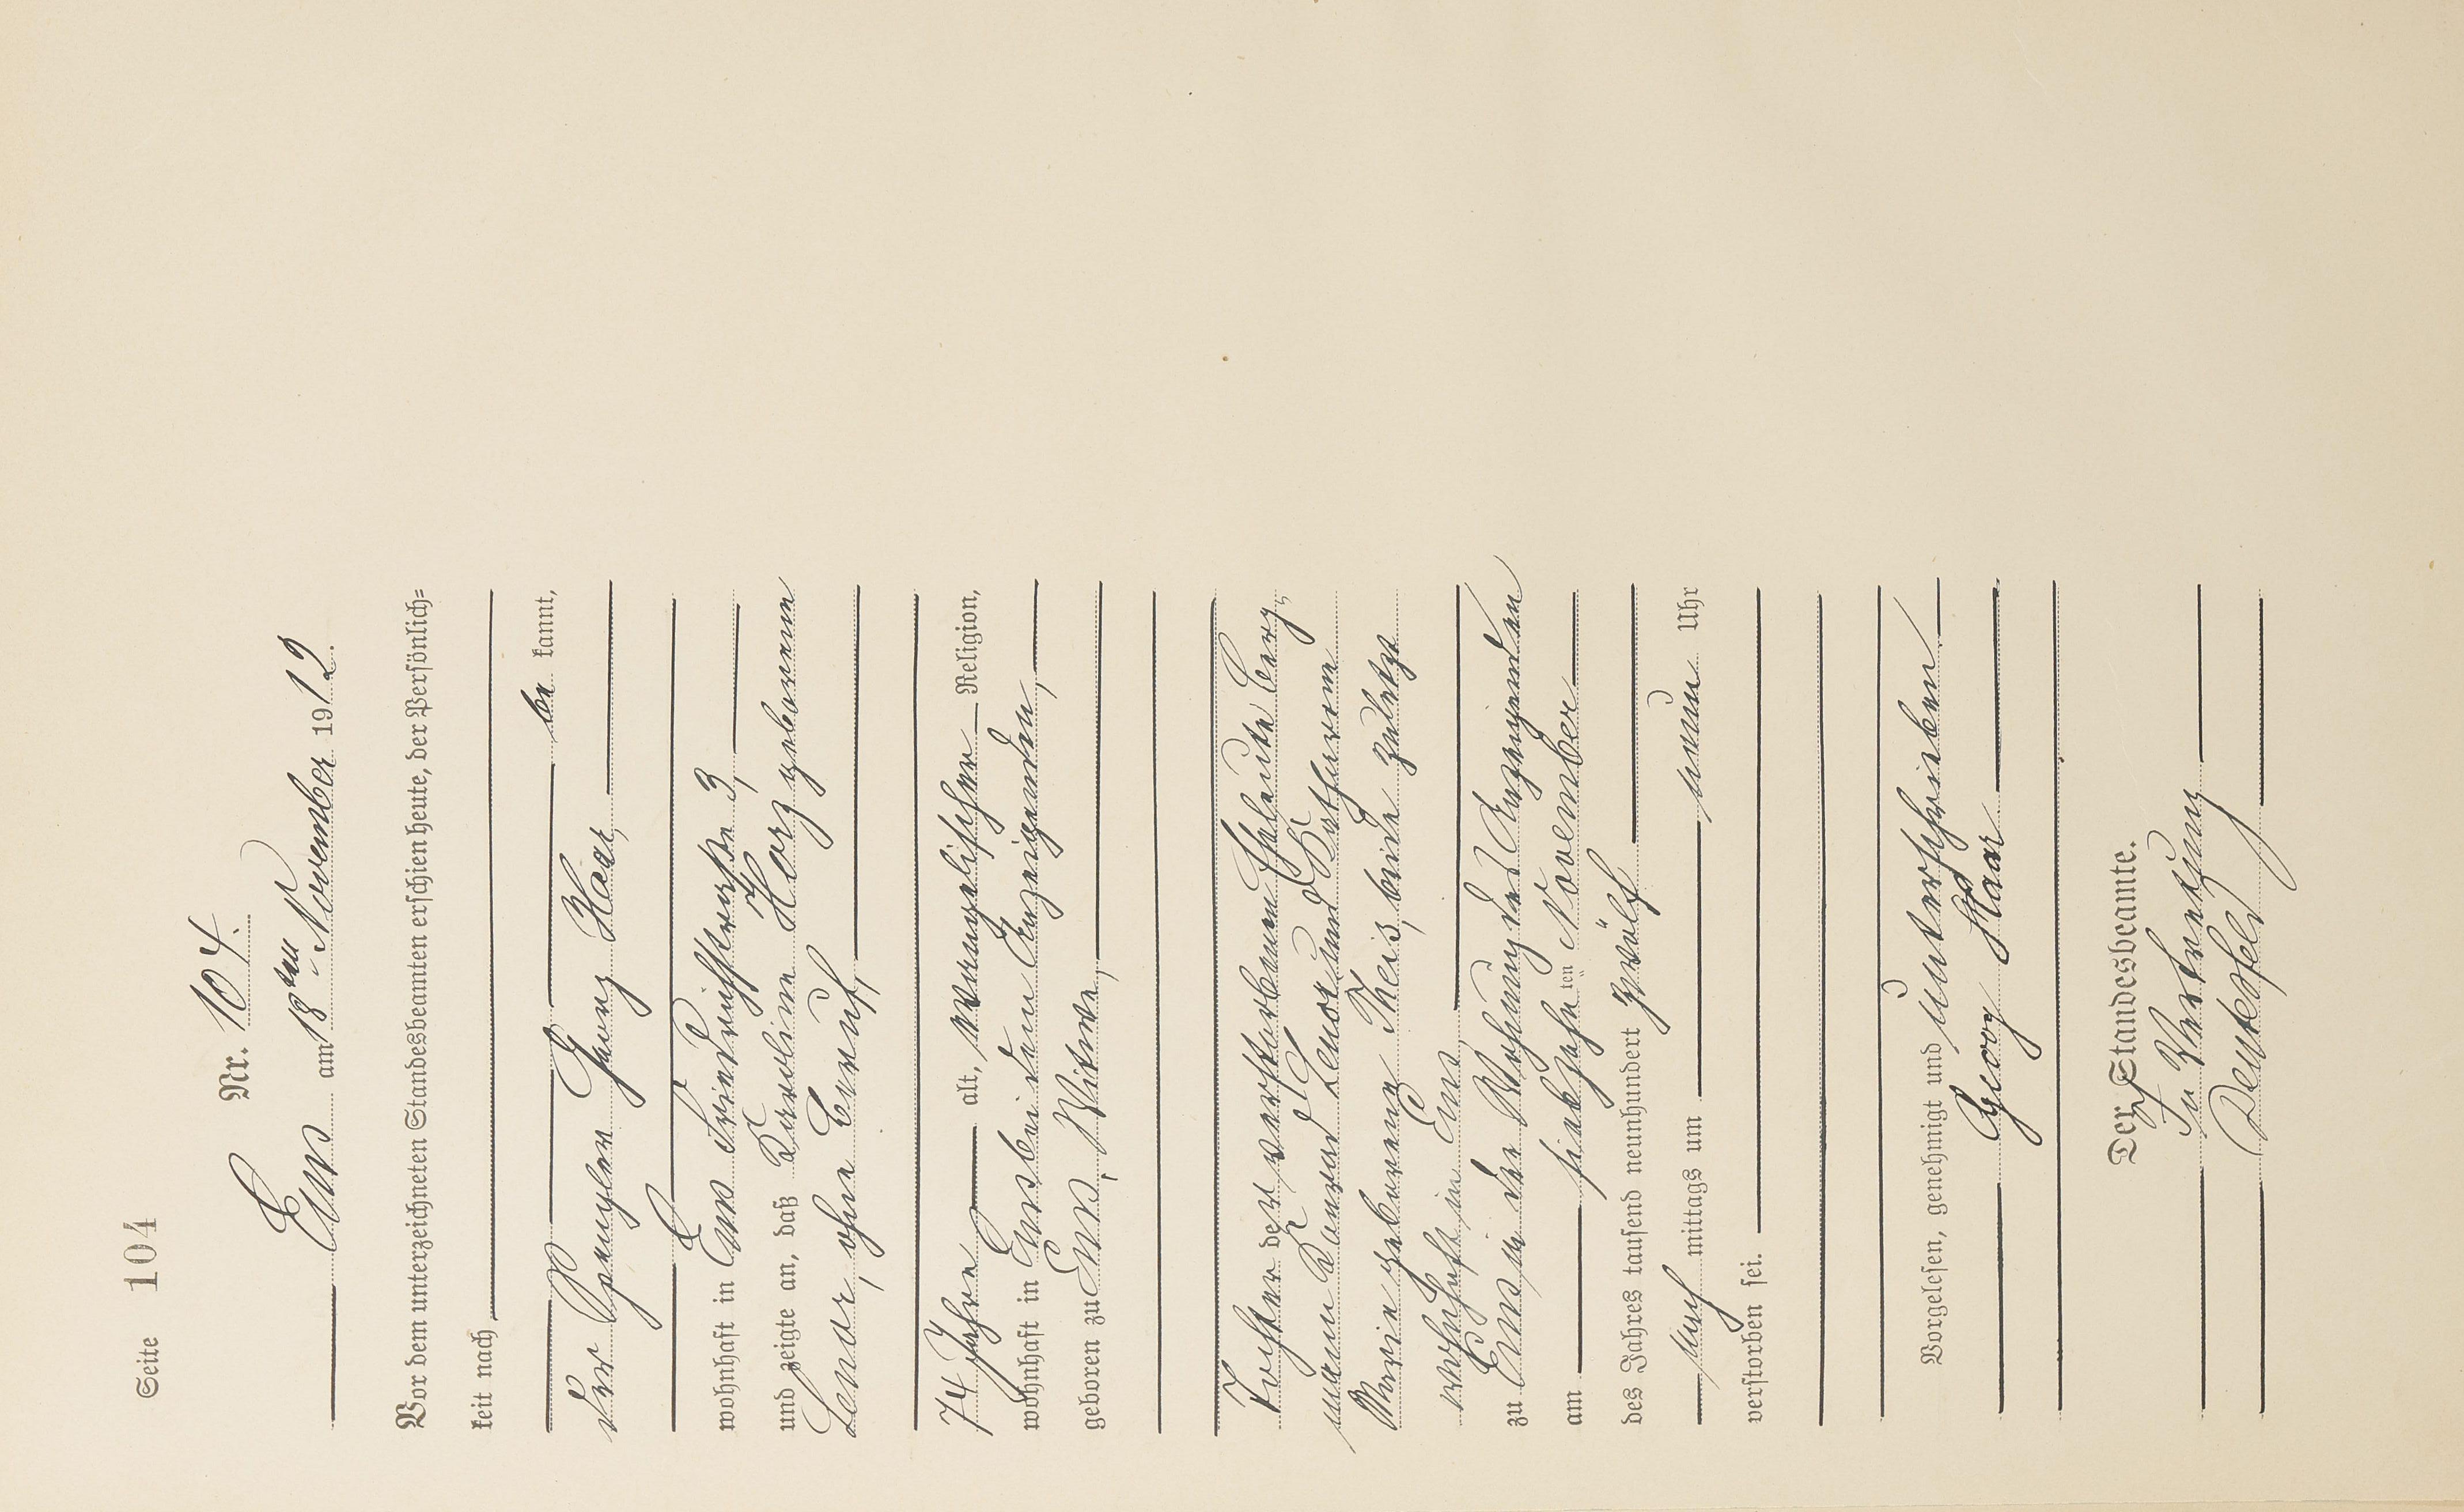 Seite 104
Nr. 104.
Ems am 18ten November 1912.
Vor dem unterzeichneten Standesbeamten erschien heute, der Persönlich-
keit nach
be kannt,
der Spengler Georg Haar,
wohnhaft in Ems Friedrichstraße 3,
und zeigte an, daß Karoline Horz geborenen
Lenor, ohne Beruf,
74 Jahre alt, evangelischer Religion,
wohnhaft in Ems bei dem Anzeigenden,
geboren zu Ems, Witwe,
Tochter der verstorbenen Eheleute Berg-
mann Konrad Lenor und Katharina
Maria geborene Theis, beide zuletzt
wohnhaft in Ems
zu Ems in der Wohnung des Anzeigenden
am siebzehnten November
des Jahres tausend neunhundert zwölf
nach mittags um neun Uhr
verstorben sei.
Vorgelesen, genehmigt und unterschrieben.
Georg Haar
Der Standesbeamte.
In Vertretung
Deutesfeld